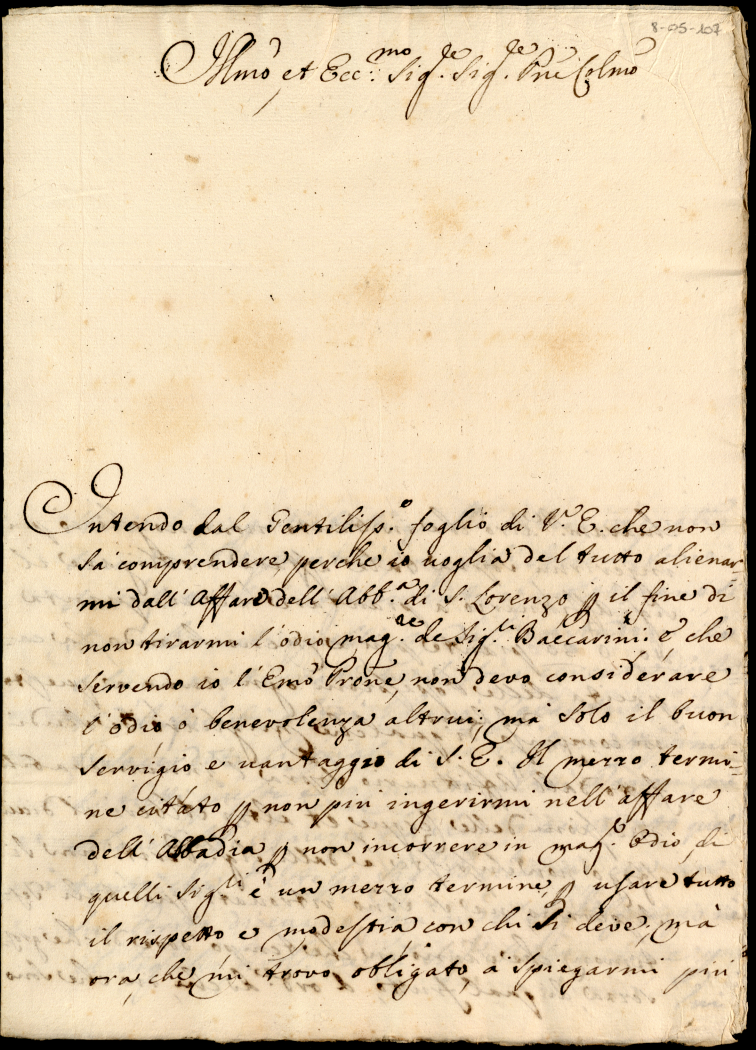 8-05-107
Illmo et Ecc.mo Sig.re Sig.re Pne Colmo
Intendo dal Gentiliss.o foglio di V.E. che non
sà comprendere, perche io uoglia del tutto alienar-
mi dall'Affare dell'Abb.a di S. Lorenzo p il fine di
non tirarmi l'odio mag.re de Sig.ri Baccarini. e che
servendo io l'Emo Prone, non devo considerare
l'odio ò benevolenza altrui; mà solo il buon
servigio e uantaggio di S.E. Il mezzo termi-
ne citato p non piu ingerirmi nell'affare
dell'Abbadia p non incorrere in mag.e Odio di
quelli Sig.ri è un mezzo termine, p usare tutto
il rispetto e modestia con chi si deve, mà
ora, che mi trovo obligato, à spiegarmi piu